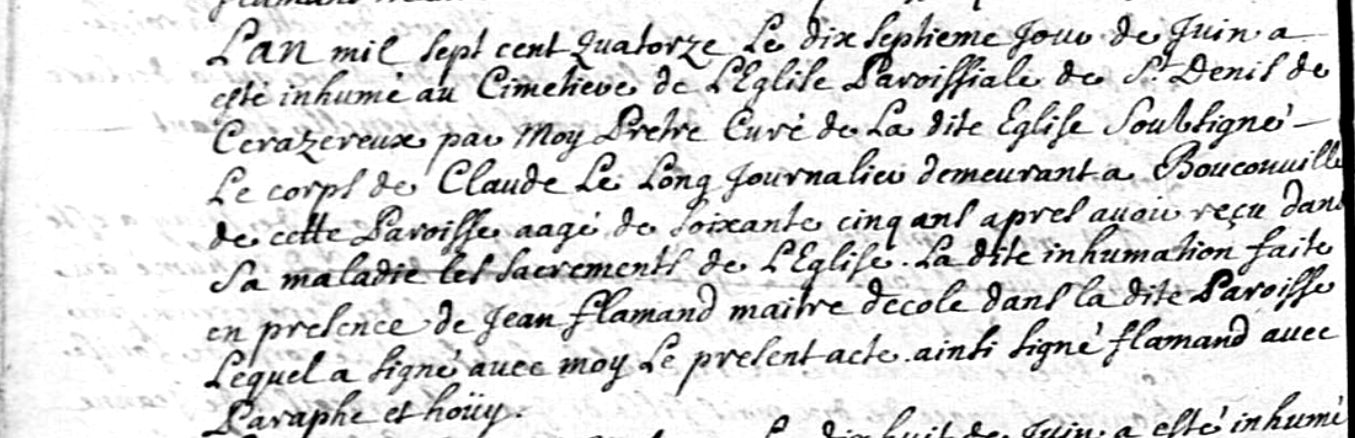 Lan mil sept cent Quatorze Le dix septieme Jour de Juin a
esté inhumé au Cimetiere de L'Eglise Paroissiale de St. Denis de
Cerazereux par Moy Pretre Curé de La dite Eglise Soubsigné
Le corps de Claude Le Long Journalier demeurant a Bouconville
de cette Paroisse aagé de soixante cinq ans apres avoir reçu dans
sa maladie les sacrements de L'Eglise. La dite inhumation faite
en presence de Jean flamand maitre decole dans la dite Paroisse
Lequel a signé avec moy Le present acte. ainsi signé flamand avec
Paraphe et hoüy.
Le dix huit de Juin a esté inhumé